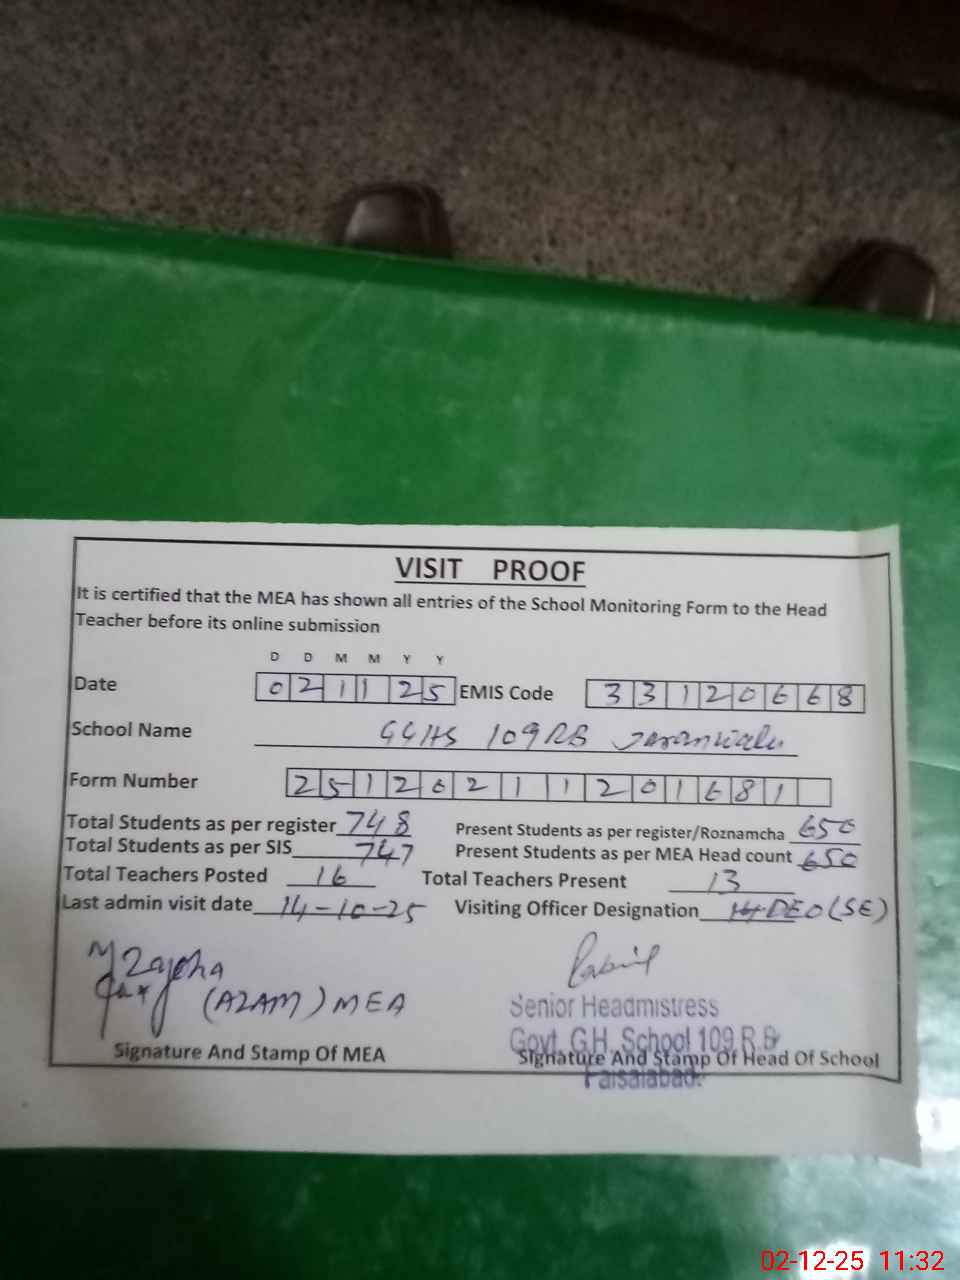 VISIT PROOF
It is certified that the MEA has shown all entries of the School Monitoring Form to the Head
Teacher before its online submission
D D M M Y Y
Date 021125 EMIS Code 33120668
School Name GGHS 109RB Jaranwala
Form Number 25120211201681
Total Students as per register 748 Present Students as per register/Roznamcha 650
Total Students as per SIS 747 Present Students as per MEA Head count 650
Total Teachers Posted 16 Total Teachers Present 13
Last admin visit date 14-10-25 Visiting Officer Designation DEO(SE)
(AZAM) MEA
Senior Headmistress
Govt. G.H. School 109 R.B
Signature And Stamp Of MEA Signature And Stamp Of Head Of School
Faisalabad.
02-12-25 11:32